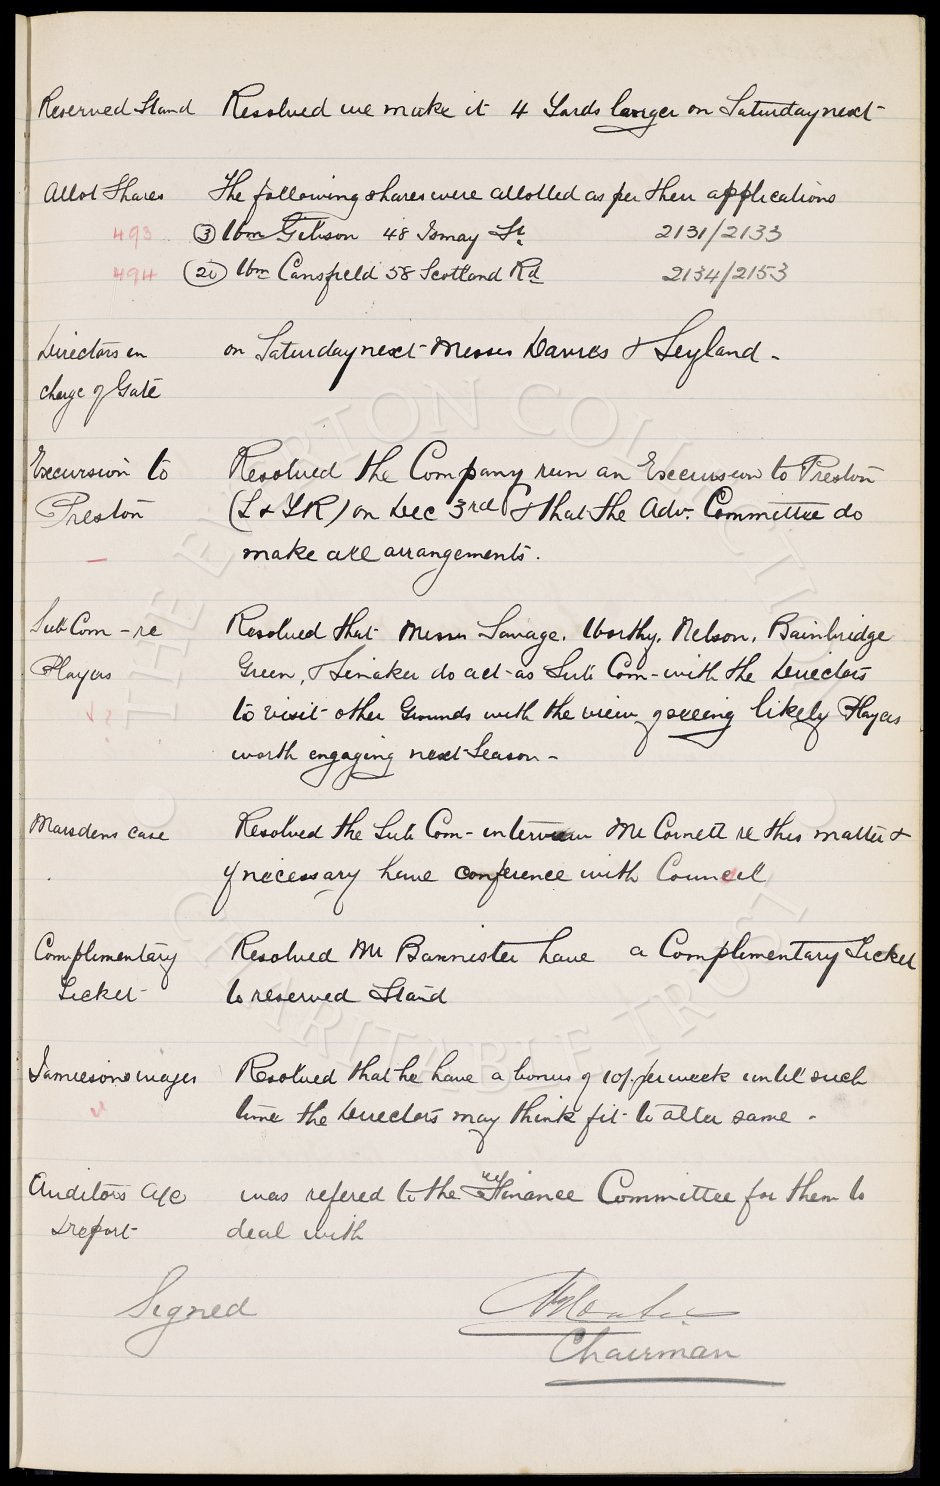 Reserved Stand Resolved we make it 4 Yards larger on Saturday next
Allot Shares The following shares were allotted as per their applications
493 (3) Wm Gibson 48 Ismay St 2131/2133
494 (20) Wm Cansfield 58 Scotland Rd 2134/2153
Directors in on Saturday next Messrs Davies & Leyland -
charge of Gate
Excursion to Resolved the Company run an Excursion to Preston
Preston (L & YR) on Dec 3rd & that the Adv. Committee do
make all arrangements.
Sub Com - re Resolved that Messrs Savage, Worthy, Nelson, Bainbridge
Players Green, & Linaker do act as Sub Com - with the Directors
to visit other Grounds with the view of seeing likely Players
worth engaging next Season -
Marsdens case Resolved the Sub Com - interview Mr Cornett re this matter &
if necessary have conference with Council
Complimentary Resolved Mr Bannister have a Complimentary Ticket
Ticket to reserved Stand
Jamiesons wages Resolved that he have a bonus of 10/- per week until such
time the Directors may think fit to alter same -
Auditors a/c was refered to the Finance Committee for them to
& report deal with
Signed
Chairman
THE EVERTON COLLECTION
CHARITABLE TRUST